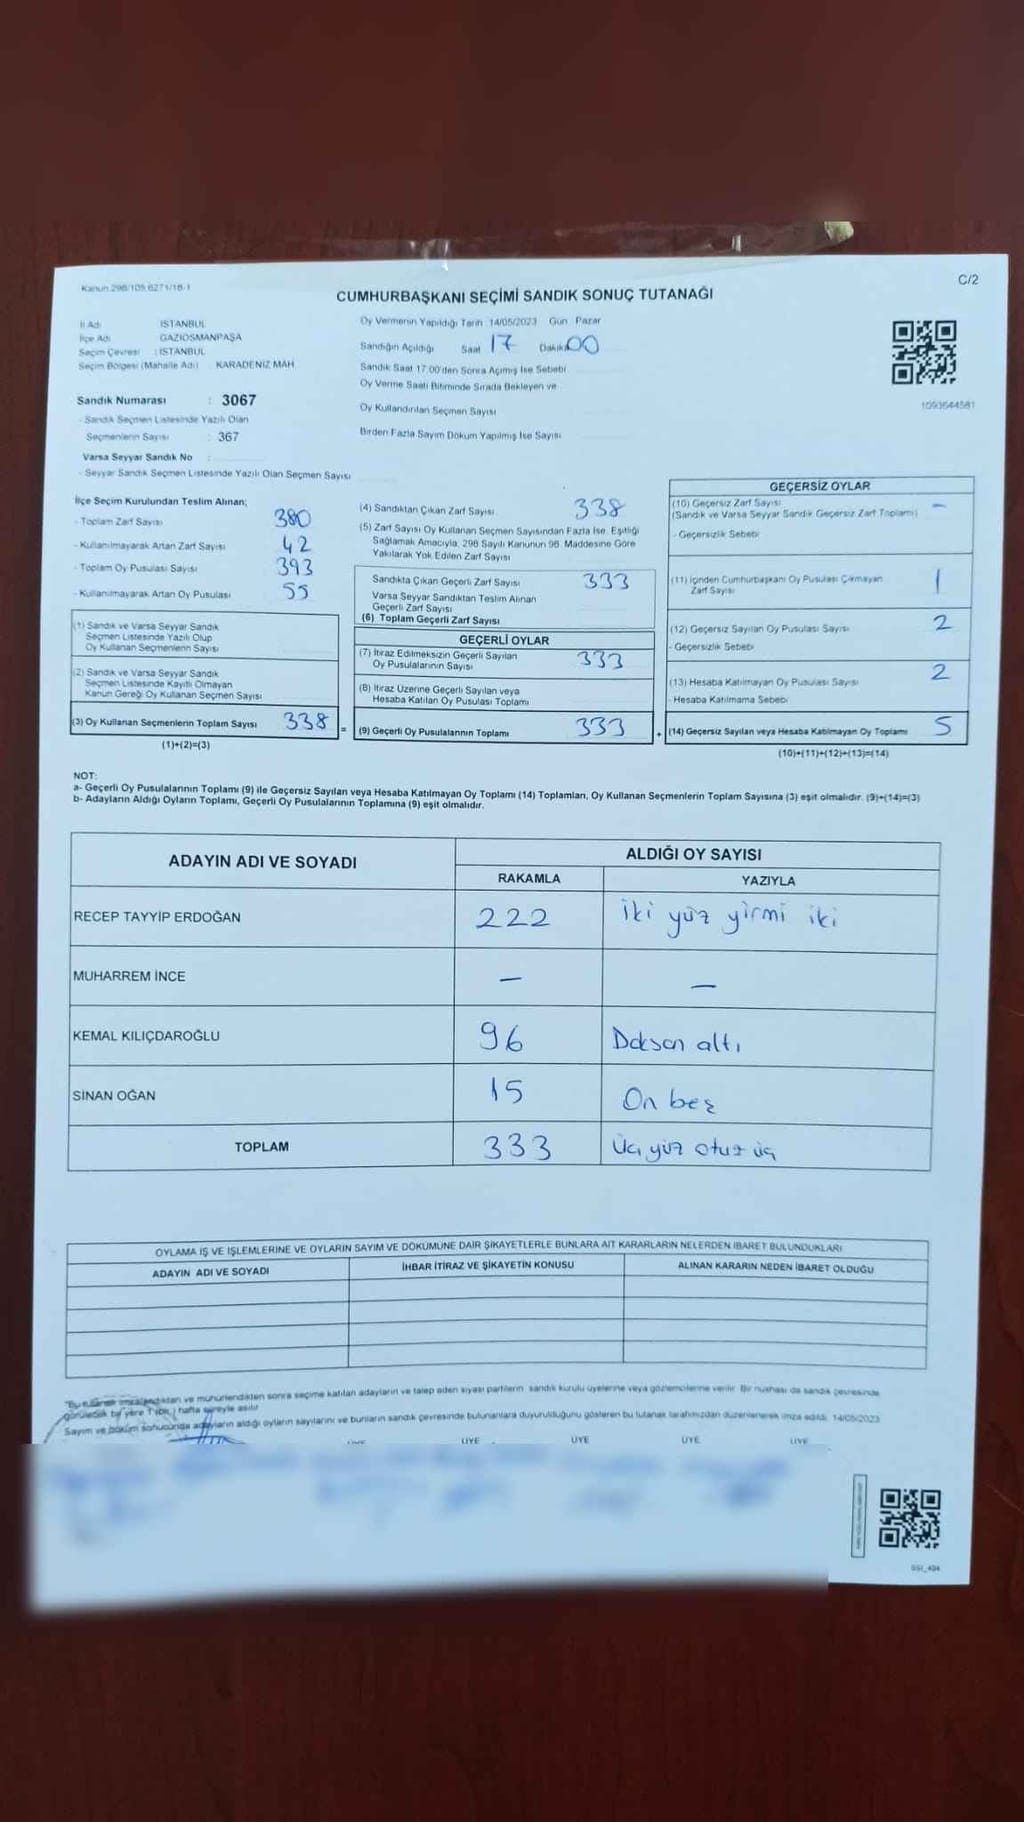 C/2
Kanun 298/105,6271/16-1
CUMHURBAŞKANI SEÇİMİ SANDIK SONUÇ TUTANAĞI
İl Adı İSTANBUL
İlçe Adı GAZİOSMANPAŞA
Seçim Çevresi : İSTANBUL
Seçim Bölgesi (Mahalle Adı) KARADENİZ MAH
Oy Vermenin Yapıldığı Tarih 14/05/2023 Gün Pazar
Sandığın Açıldığı Saat 17 Dakika 00
Sandık Saat 17:00'den Sonra Açılmış İse Sebebi
Oy Verme Saati Bitiminde Sırada Bekleyen ve
Oy Kullandırılan Seçmen Sayısı
Birden Fazla Sayım Döküm Yapılmış İse Sayısı
1093644581
Sandık Numarası : 3067
- Sandık Seçmen Listesinde Yazılı Olan
Seçmenlerin Sayısı : 367
Varsa Seyyar Sandık No :
- Seyyar Sandık Seçmen Listesinde Yazılı Olan Seçmen Sayısı
İlçe Seçim Kurulundan Teslim Alınan;
- Toplam Zarf Sayısı 380
- Kullanılmayarak Artan Zarf Sayısı 42
- Toplam Oy Pusulası Sayısı 393
- Kullanılmayarak Artan Oy Pusulası 55
(1) Sandık ve Varsa Seyyar Sandık
Seçmen Listesinde Yazılı Olup
Oy Kullanan Seçmenlerin Sayısı
(2) Sandık ve Varsa Seyyar Sandık
Seçmen Listesinde Kayıtlı Olmayan
Kanun Gereği Oy Kullanan Seçmen Sayısı
(3) Oy Kullanan Seçmenlerin Toplam Sayısı 338 =
(1)+(2)=(3)
(4) Sandıktan Çıkan Zarf Sayısı 338
(5) Zarf Sayısı Oy Kullanan Seçmen Sayısından Fazla İse, Eşitliği
Sağlamak Amacıyla, 298 Sayılı Kanunun 98. Maddesine Göre
Yakılarak Yok Edilen Zarf Sayısı
Sandıkta Çıkan Geçerli Zarf Sayısı 333
Varsa Seyyar Sandıktan Teslim Alınan
Geçerli Zarf Sayısı
(6) Toplam Geçerli Zarf Sayısı
GEÇERLİ OYLAR
(7) İtiraz Edilmeksizin Geçerli Sayılan
Oy Pusulalarının Sayısı 333
(8) İtiraz Üzerine Geçerli Sayılan veya
Hesaba Katılan Oy Pusulası Toplamı
(9) Geçerli Oy Pusulalarının Toplamı 333 +
GEÇERSİZ OYLAR
(10) Geçersiz Zarf Sayısı -
(Sandık ve Varsa Seyyar Sandık Geçersiz Zarf Toplamı)
- Geçersizlik Sebebi
(11) İçinden Cumhurbaşkanı Oy Pusulası Çıkmayan
Zarf Sayısı 1
(12) Geçersiz Sayılan Oy Pusulası Sayısı 2
- Geçersizlik Sebebi
(13) Hesaba Katılmayan Oy Pusulası Sayısı 2
- Hesaba Katılmama Sebebi
(14) Geçersiz Sayılan veya Hesaba Katılmayan Oy Toplamı 5
(10)+(11)+(12)+(13)=(14)
NOT:
a- Geçerli Oy Pusulalarının Toplamı (9) ile Geçersiz Sayılan veya Hesaba Katılmayan Oy Toplamı (14) Toplamları, Oy Kullanan Seçmenlerin Toplam Sayısına (3) eşit olmalıdır. (9)+(14)=(3)
b- Adayların Aldığı Oyların Toplamı, Geçerli Oy Pusulalarının Toplamına (9) eşit olmalıdır.
ADAYIN ADI VE SOYADI ALDIĞI OY SAYISI
RAKAMLA YAZIYLA
RECEP TAYYİP ERDOĞAN 222 iki yüz yirmi iki
MUHARREM İNCE - -
KEMAL KILIÇDAROĞLU 96 Doksan altı
SİNAN OĞAN 15 On beş
TOPLAM 333 Üç yüz otuz üç
OYLAMA İŞ VE İŞLEMLERİNE VE OYLARIN SAYIM VE DÖKÜMÜNE DAİR ŞİKAYETLERLE BUNLARA AİT KARARLARIN NELERDEN İBARET BULUNDUKLARI
ADAYIN ADI VE SOYADI İHBAR İTİRAZ VE ŞİKAYETİN KONUSU ALINAN KARARIN NEDEN İBARET OLDUĞU
"Bu tutanak imzalandıktan ve mühürlendikten sonra seçime katılan adayların ve talep eden siyasi partilerin sandık kurulu üyelerine veya gözlemcilerine verilir. Bir nüshası da sandık çevresinde
görülecek bir yere 1 (bir) hafta süreyle asılır
Sayım ve döküm sonucunda adayların aldığı oyların sayılarını ve bunların sandık çevresinde bulunanlara duyurulduğunu gösteren bu tutanak tarafımızdan düzenlenerek imza edildi. 14/05/2023
ÜYE ÜYE ÜYE ÜYE ÜYE